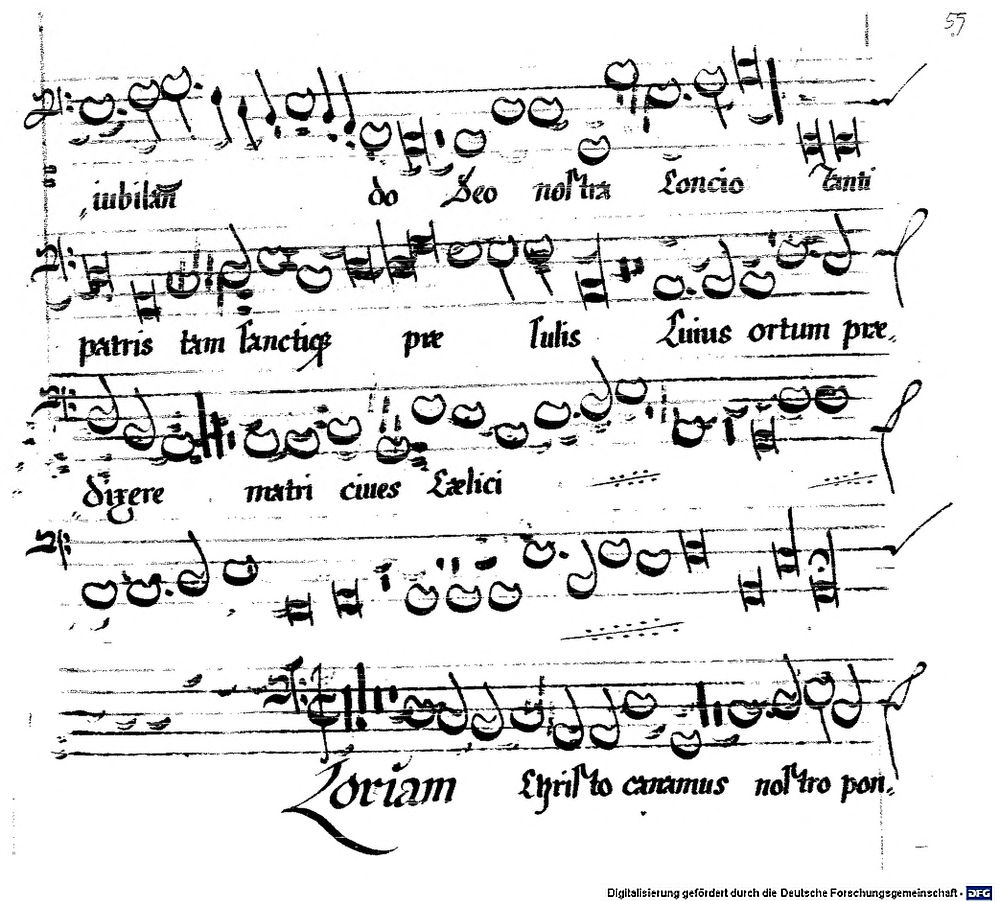 55
iubilan̄ do Deo nostra Concio Tanti
patris tam sanctiqꝫ præ sulis Cuius ortum præ,
dixere matri ciues Cælici
Loriam Christo canamus nostro pon,
Digitalisierung gefördert durch die Deutsche Forschungsgemeinschaft - DFG